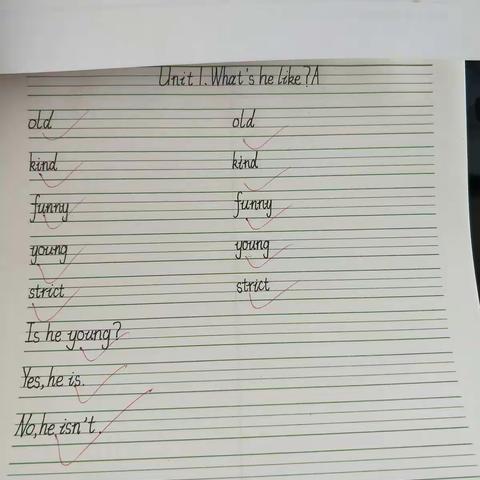 Unit 1. What's he like? A
old old
kind kind
funny funny
young young
strict strict
Is he young?
Yes, he is.
No, he isn't.